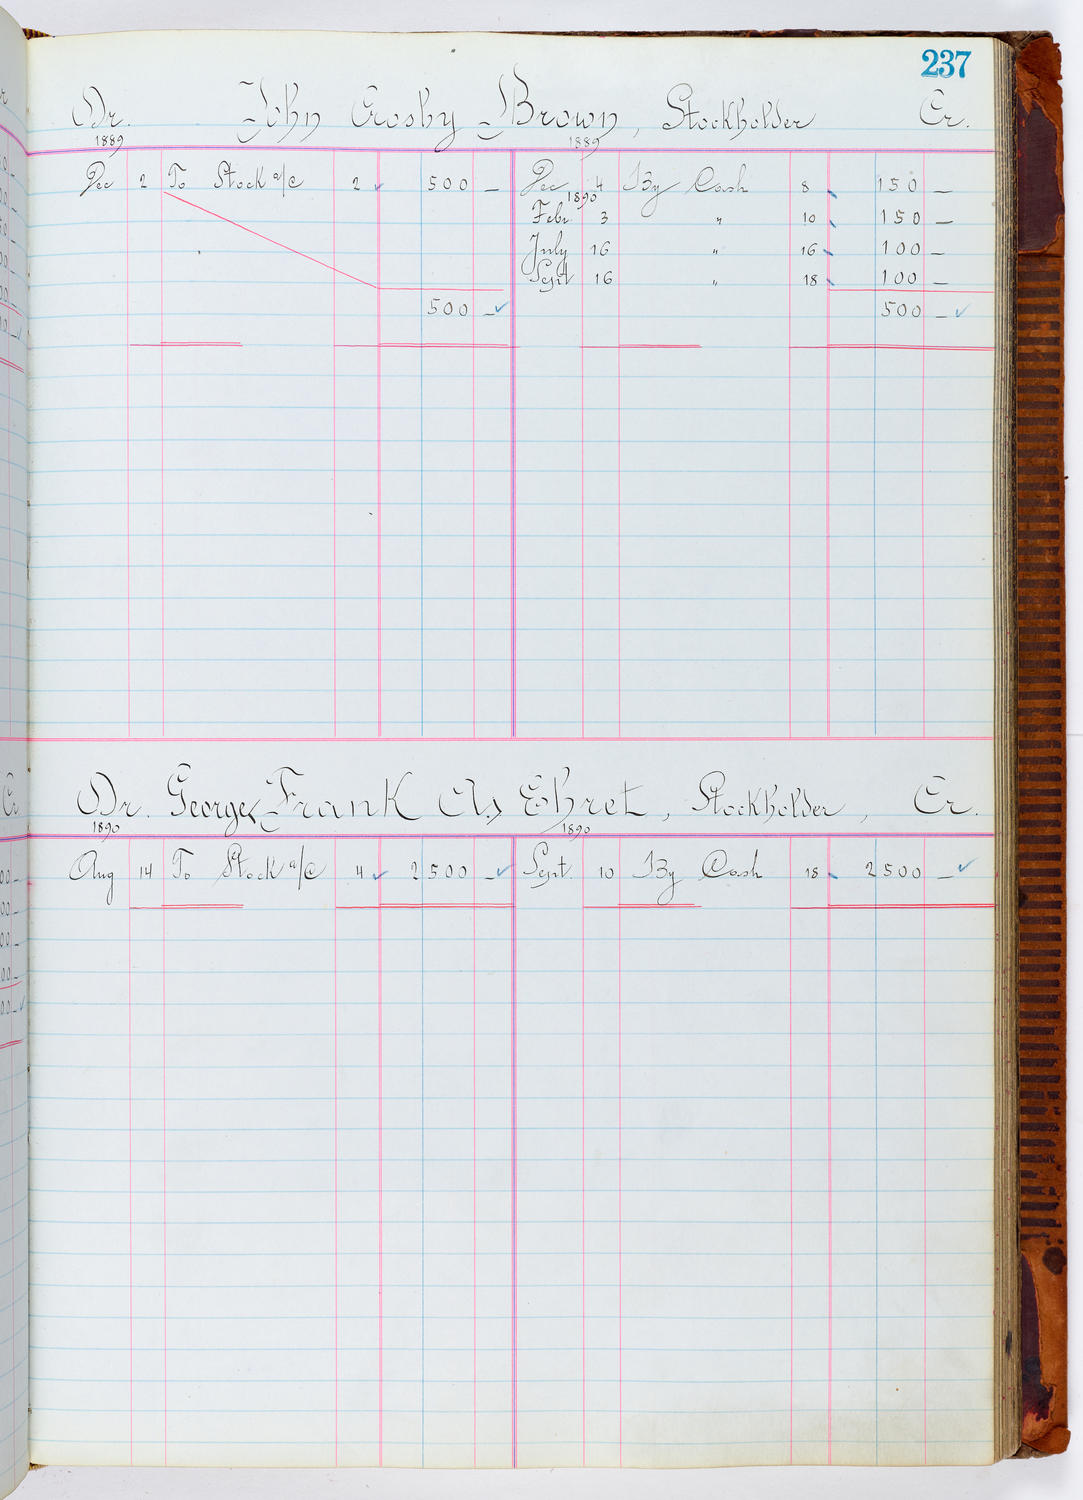 237
Dr. John Crosby Brown, Stockholder Cr.
1889 1889
Dec 2 To Stock a/c 2 ✓ 500 — Dec 4 By Cash 8 150 —
1890
Febr 3 " 10 150 —
July 16 " 16 100 —
Sept 16 " 18 100 —
500 — ✓ 500 — ✓
Dr. George, Frank (A.) Ehret, Stockholder, Cr.
1890 1890
Aug 14 To Stock a/c 4 ✓ 2500 — ✓ Sept. 10 By Cash 18 2500 — ✓